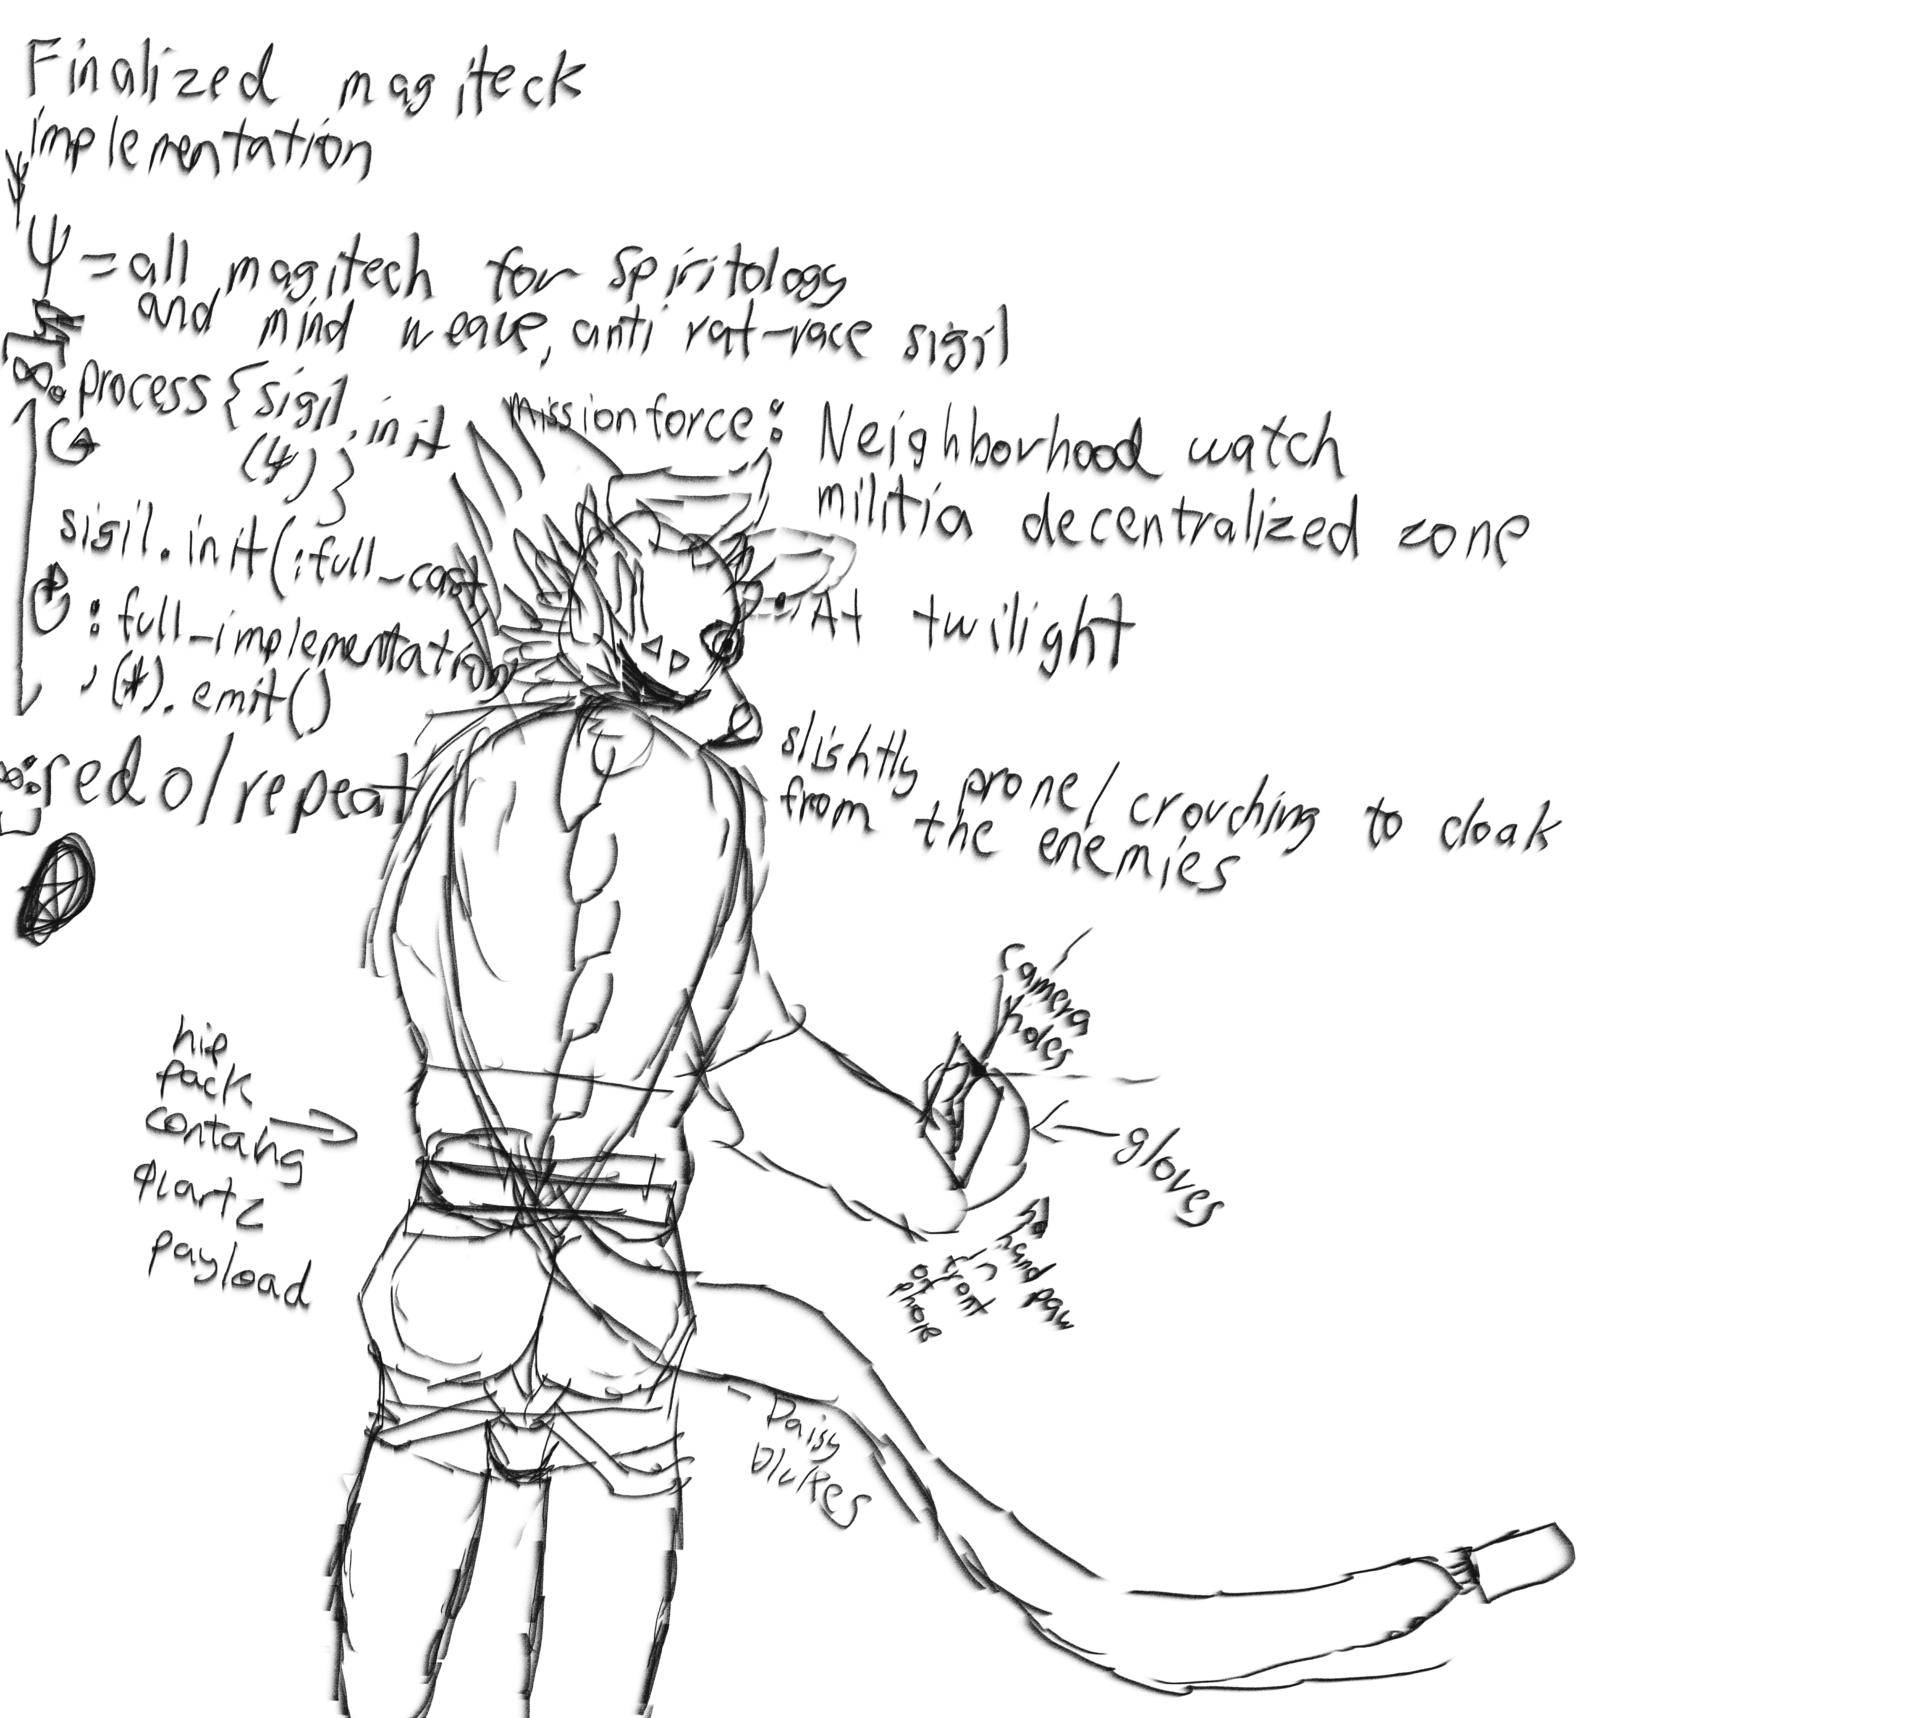 Finalized magiteck
implementation
ψ = all magitech for spiritology
and mind weave, anti rat-race sigil
∞: process {sigil.init
(ψ)}
sigil.init(:full_cast
:full-implementation
,(#).emit()
∞: redo/repeat
missionforce: Neighborhood watch
militia decentralized zone
: At twilight
slightly prone/crouching to cloak
from the enemies
camera
holes
gloves
hip
pack
containg
quartz
payload
hand paw
front
of phone
Daisy
Dukes